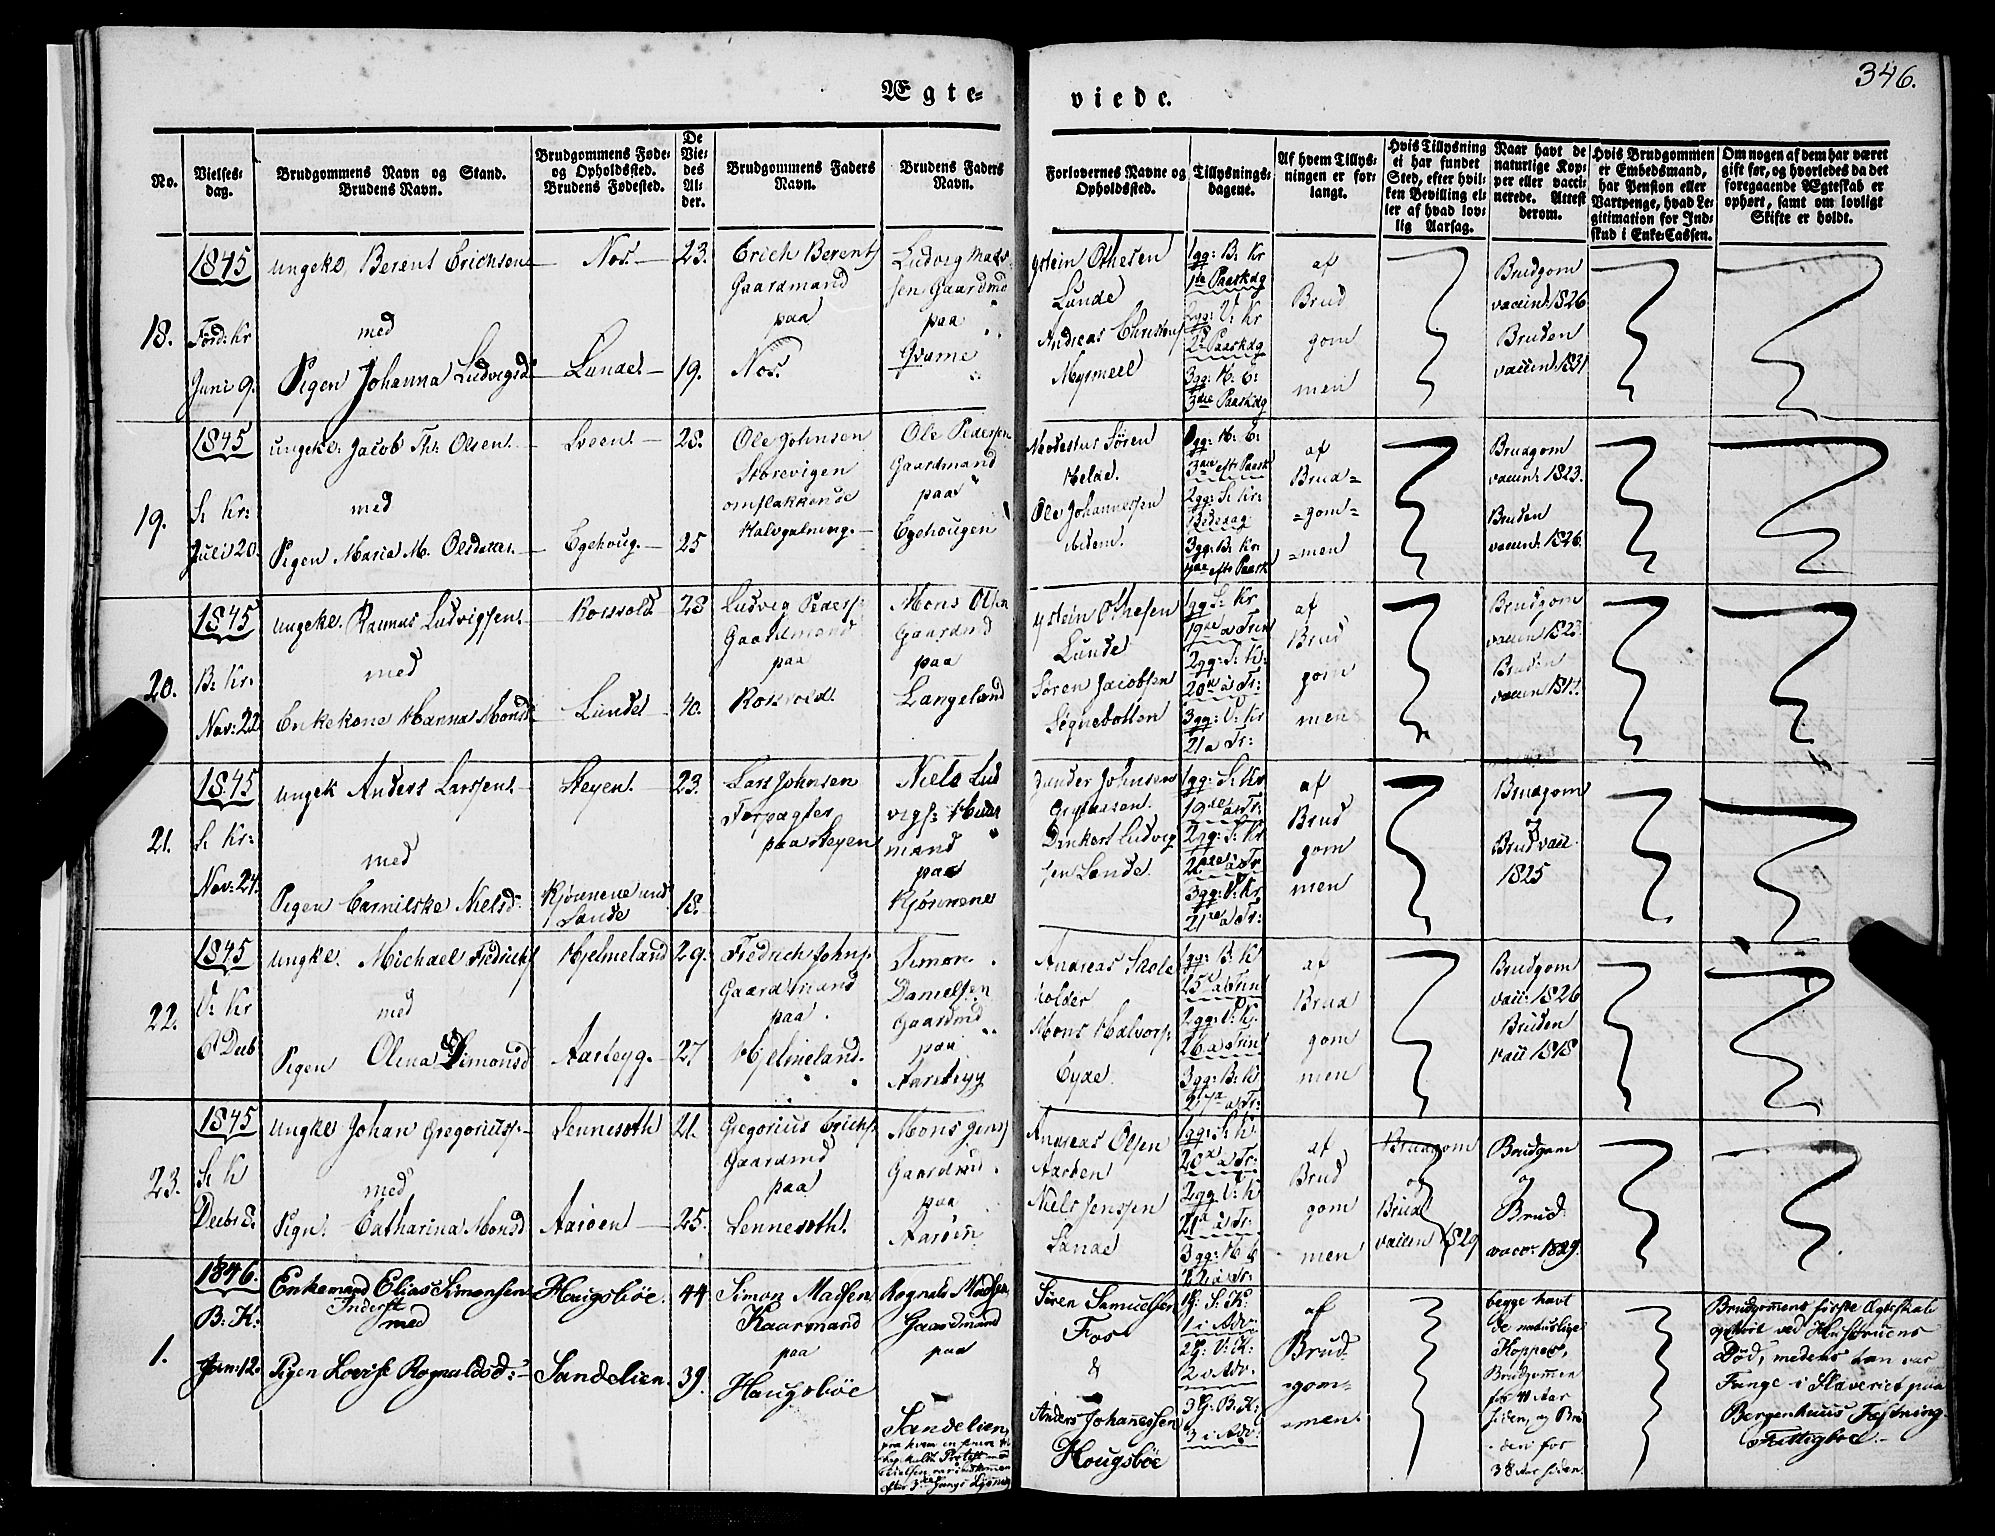 346.
Ægte-
viede.
No.
Vielses-
dag.
Brudgommens Navn og Stand.
Brudens Navn.
Brudgommens Føde-
og Opholdssted.
Brudens Fødested.
De
Vie-
des
Al-
der.
Brudgommens Faders
Navn.
Brudens Faders
Navn.
Forlovernes Navne og
Opholdssted.
Tillysnings-
dagene.
Af hvem Tillys-
ningen er for-
langt.
Hvis Tillysning
ei har fundet
Sted, efter hvil-
ken Bevilling el-
ler af hvad lov-
lig Aarsag.
Naar havt de
naturlige Kop-
per eller vacci-
nerede. Attest
derom.
Hvis Brudgommen
er Embedsmand,
har Pension eller
Vartpenge, hvad Le-
gitimation for Ind-
skud i Enke-Cassen.
Om nogen af dem har været
gift før, og hvorledes da det
foregaaende Ægteskab er
ophørt, samt om lovligt
Skifte er holdt.
18.
1845
Förd: Kr
Juni 9.
ungeke, Berent Erichsen
med
Pigen Johanna Ludvigsd
Nos
Lunde
23.
19.
Erich Berents
Gaardmand
paa
Nos.
Ludvig Mads
sen Gaardmd
paa
Qvame
Ystein Othesen
Lunde
Andreas Christens
Myrmeel
1gg: B: Kr
1ste Paaskdg
2gg: V: Kr
2d Paaskdg
3gg: K: C:
3die Paaskdg
af
Brud
gom
men
Brudgom
vaccin: 1826
Bruden
vaccin: 1831
19.
1845
S: Kr:
Juli 20.
ungeke. Jacob Th: Olsen
med
Pigen Maria M. Olsdatter
Sveen
Egehoug
28.
25
Ole Johnsen
Storevigen
omflakkende
Ole Pedersen
Gaardmand
paa
Egehougen
Søren
Helde.
Ole Johannessen
ibidem.
2gg: S: Kr:
Bededag
3gg: B. Kr.
af
Brud=
=gom=
=men
Brudgom
vaccin: 1823.
Bruden
vaccin: 1826.
20.
1845
B: Kr:
Nov: 22
ungeke. Rasmus Ludvigsen
med
Enkekone Hanna Monsd
Rosvold
Lunde
23
40.
Ludvig Peders:
Gaardmand
paa
Rosvold
Mons Olsen
Gaardmd
paa
Langeland
Ystein Othesen
Lunde
Søren Jacobsen
Sognebotten
1gg S: Kr
19de a Trin
2gg: S: Kr:
20de a Tr:
3gg: V: Kr
21 a Tr:
af
Brud
gom
men
Brudgom
vaccin 1823.
Bruden
21.
1845
S: Kr:
Nov: 24.
ungek Anders Larssen
med
Pigen Niels d.
Steyen.
Kjønnene und
Sande
23.
18.
Lars Johnsen
Forpagter
paa Steyen
Niels Lud
vigs:
mand
paa
Kjønnene
Johnsen
Dankert Ludvig
sen Sande.
1gg: S: Kr
19de a Tr:
2gg: S: Kr
20de a Tr
3gg: V: Kr
21de a Tr:
af
Brud
gom
men
Brudgom
og
Brud vacc
1825
22.
1845
V: Kr
6t Decb
ungke. Michael Fredrichs
med
Pigen Olina Simonsd
Hjelmeland
Aarstegg.
29.
27
Fredrich Johns:
Gaardmand
paa
Hjelmeland.
Simon
Danielsen
Gaardmd
paa
Aarstegg
Andreas Skole
holder
Mons Halvors:
Eyde.
1gg: B. K
25d a Trin
2gg: V: K:
26 a Trin
3gg: B: K
27d a Tr:
af
Brud
gom
men
Brudgom
vacc: 1826
Bruden
vacc 1818
23.
1845
S: K
Decbr 8.
ungke Johan Gregoriuss:
med
Pigen. Catharina Monsd
Lennesoth
Aarøen
21.
25.
Gregorius Erichs:
Gaardmd
paa
Lennesoth.
Mons Jens
Gaardmd.
paa
Aarøen
Andreas Olsen
Aarøen
Niels Jenssen
Sande
1gg: S: K.
20d a Tr:
2gg V: K
21d a Tr:
3gg: K C
af
Brud
gom
men
Brudgom
og
Brud
vaccin 1829
Brudgom
og
Brud
vacc: 1829.
1.
1846.
B. K:
Jan: 12.
Enkemand Elias Simonsen
Inderst
med
Pigen Lovise Rognaldsd:
Hougsbøe.
Sandelien
44
39.
Simon Madsen
Kaarmand
paa
Hougsbøe
Rognald Madsen
Gaardmand
paa
Sandelien,
Søren Samuelsen
Fos
&
Anders Johannessen
Hougsbøe
1g: S. K:
1 i Adv:
2g: V: K:
2 i Adv:
3g: B. K:
3 i Adv:
af
Brud-
-gom-
-men.
begge havt
de naturlige
Kopper,
Brudgommen
for 41 Aar
siden, og Bru
-den for
38 Aar siden.
Brudgommens første Ægteskab
ophørt ved Hustruens
Død, medens han var
Fange i Slaveriet paa
Bergenhuus Fæstning.
Fattigbod.